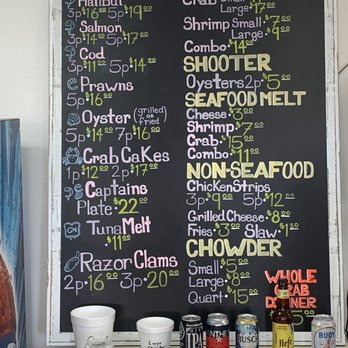 Halibut
3p $16.00 5p $19.00
Salmon
3p $14.00 5p $17.00
Cod
3p $11.00 5p $14.00
Prawns
5p $16.00
Oyster (grilled or fried)
5p $14.00 7p $16.00
Crab Cakes
1p $12.00 2p $17.00
Captains
Plate $22.00
Tuna Melt
$11.00
Razor Clams
2p $16.00 3p $20.00
Crab
Large $17.00
Shrimp Small $7.00
Large $9.00
Combo $14.00
SHOOTER
Oysters 2p $5.00
SEAFOOD MELT
Cheese $3.00
Shrimp $7.00
Crab $15.00
Combo $11.00
NON-SEAFOOD
Chicken Strips
3p $9.00 5p $12.00
Grilled Cheese $8.00
Fries $3.00 Slaw $1.00
CHOWDER
Small $5.00
Large $8.00
Quart $15.00
WHOLE
CRAB
DINNER
BUSCH
Hefe